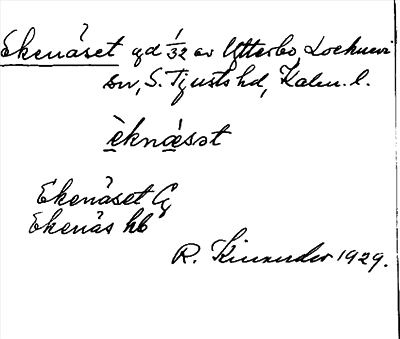 Ekenäset gd 1/32 av Ytterbo, Locknevi
sn, S. Tjusts hd, Kalm. l.
èknæsət
Ekenäset G
Ekenäs hb
R. Kinnander 1929.